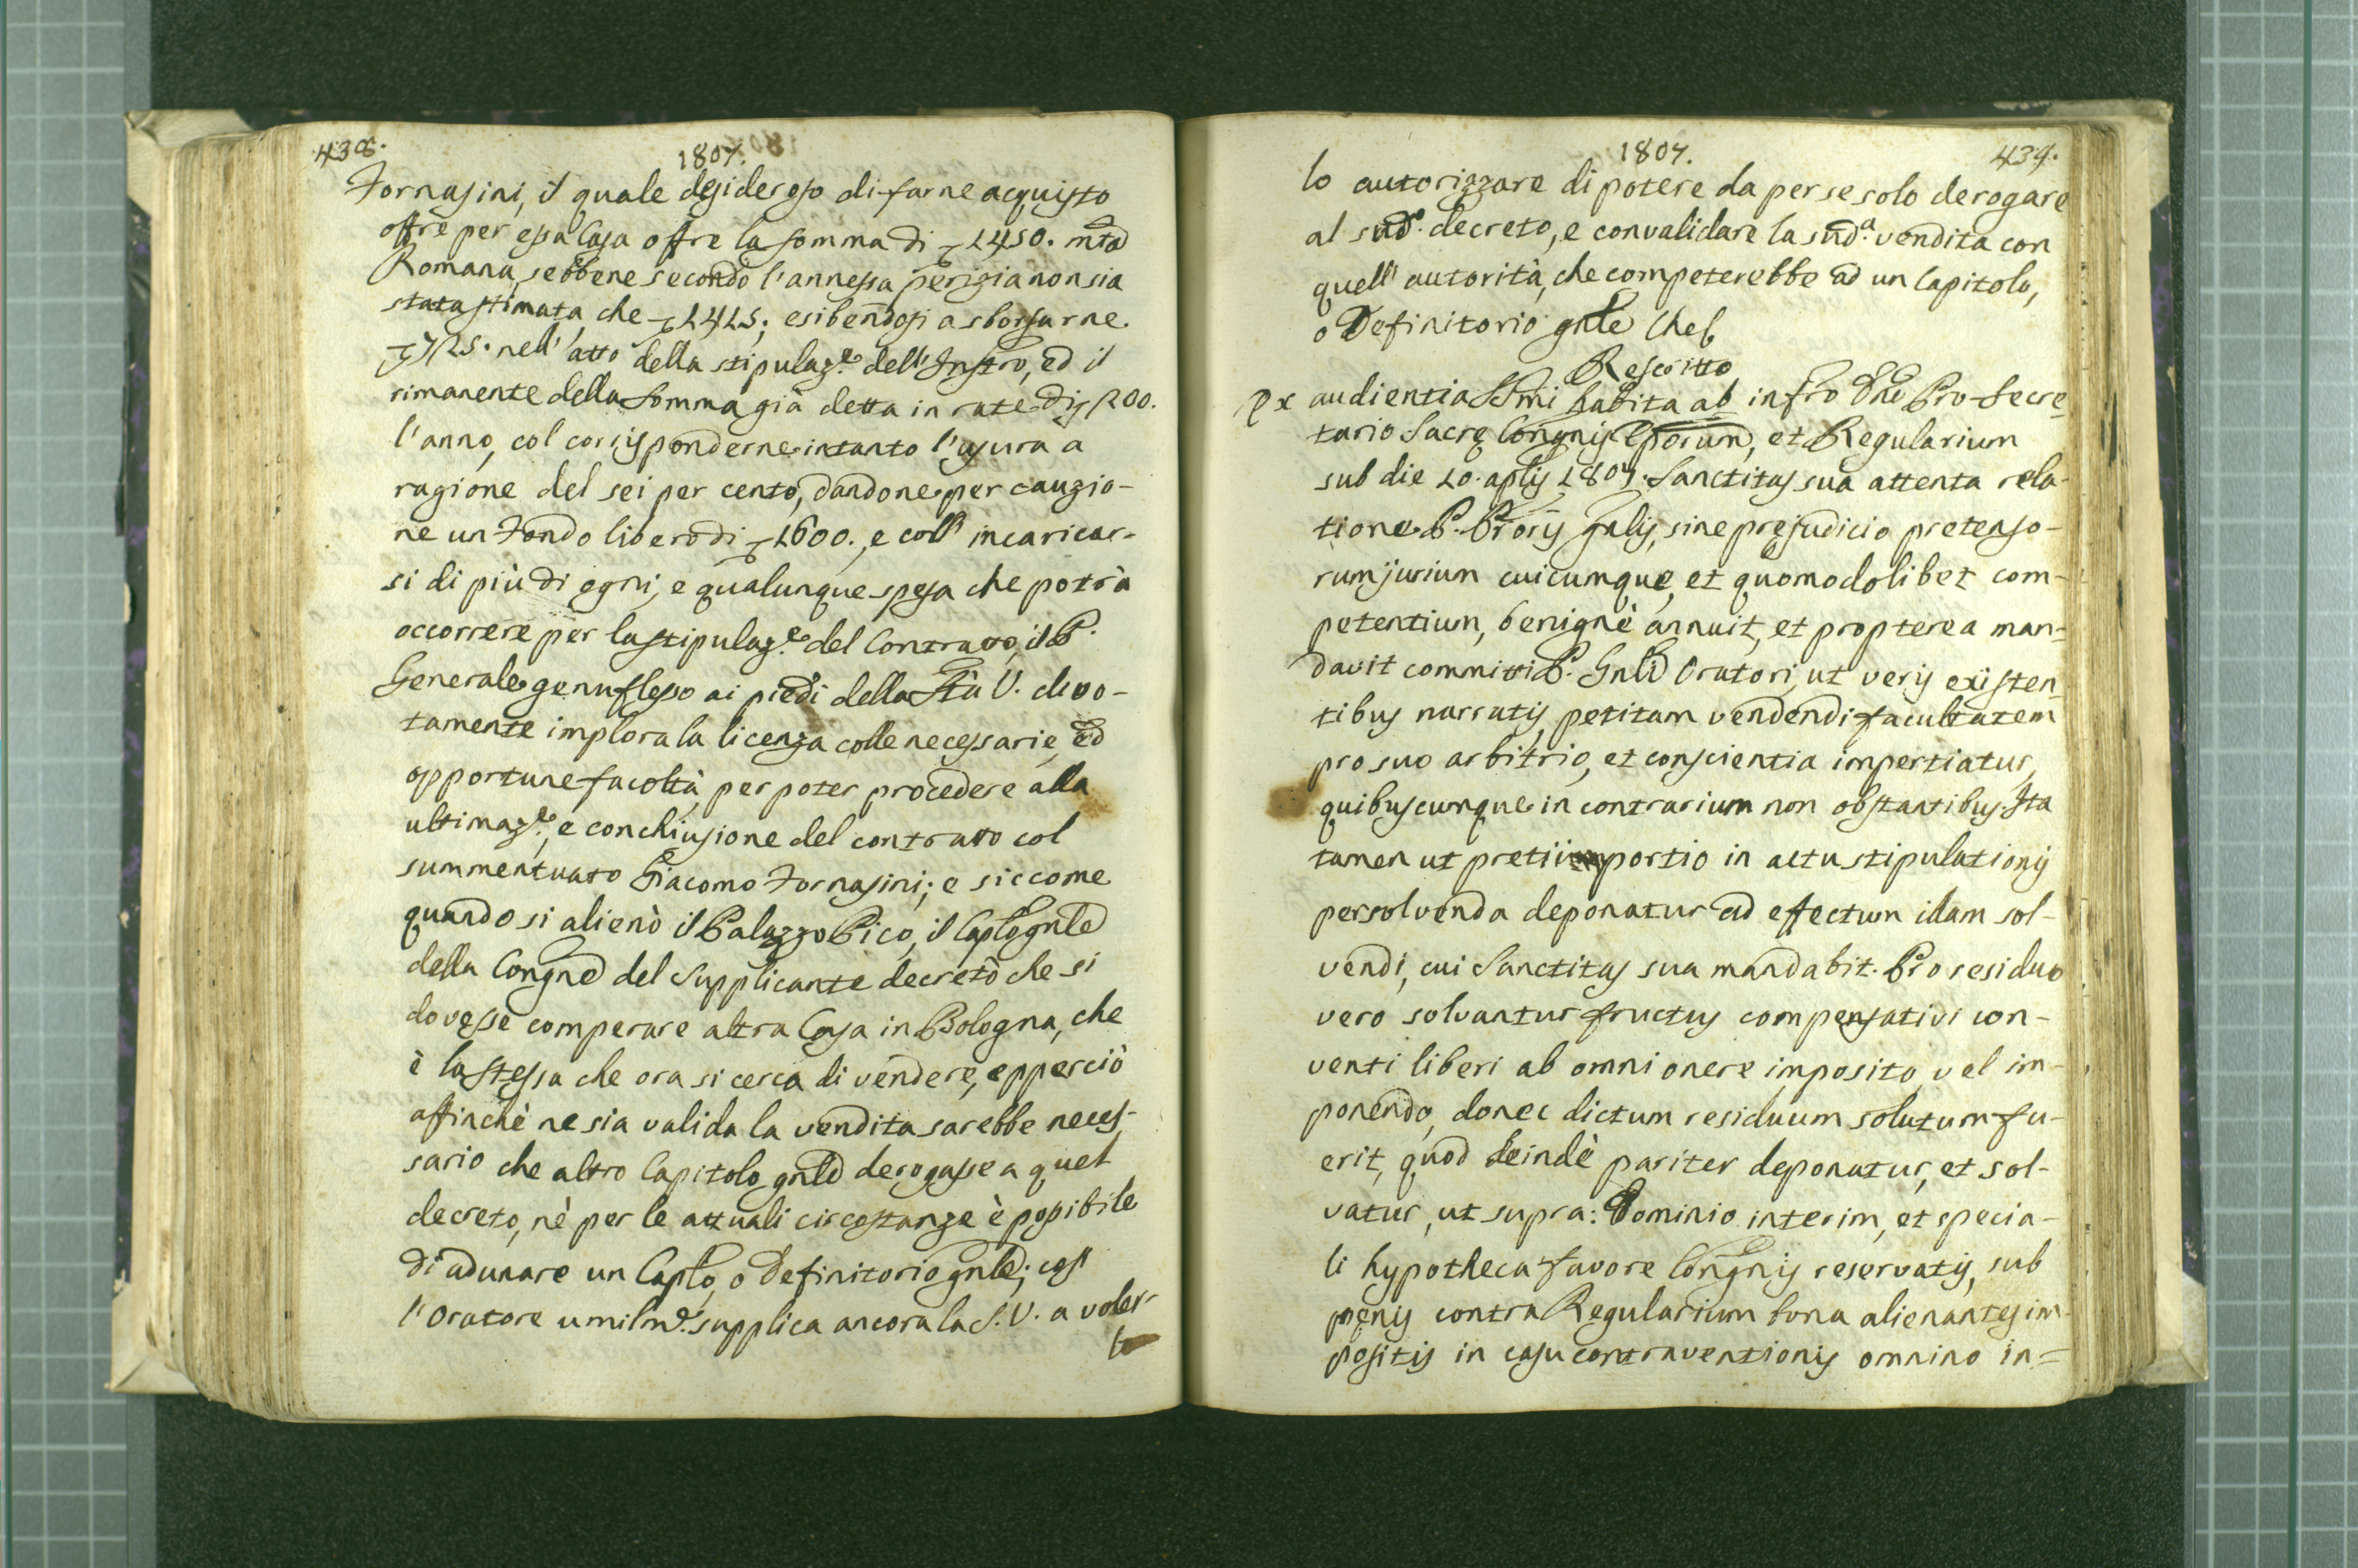 438.
1807.
Fornasini, il quale desideroso di farne acquisto
offre per essa Casa offre la somma di ∇ 1450. mta
Romana, sebbene secondo l'annessa perizia non sia
stata stimata, che ∇ 1415; esibendosi a sborsarne
nell'atto della stipulaz.e dell'Instro, ed il
rimanente della somma già detta in rate di ∇ 200.
l'anno, col corrisponderne intanto l'usura a
ragione del sei per cento, dandone per cauzio-
ne un Fondo libero di ∇ 1600., e coll' incaricar-
si di più di ogni, e qualunque spesa che potrà
occorrere per la stipulaz.e del Contratto, il P.
Generale genuflesso ai piedi della Stà V. devo-
tamente implora la licenza colle necessarie, ed
opportune facoltà, per poter procedere alla
ultimaz.e, e conchiusione del contratto col
summentuato Giacomo Fornasini; e siccome
quando si alienò il Palazzo Pico, il Caplo gnle
della Congne del Supplicante decretò che si
dovesse comperare altra Casa in Bologna, che
è la stessa che ora si cerca di vendere, epperciò
affinchè ne sia valida la vendita sarebbe neces-
sario che altro Capitolo gnle derogasse a quel
decreto, nè per le attuali circostanze è possibile
di adunare un Caplo, o Definitorio gnle; così
l'Oratore umilme. supplica ancora la S. V. a voler-
lo
1807.
439.
lo autorizzare di potere da per se solo derogare
al sud.o decreto, e convalidare la sud.a vendita con
quell' autorità, che competerebbe ad un Capitolo,
o Definitorio gnle Che
Rescritto
Ex audientia SSmi habita ab infro Dno Pro-Secre-
tario Sacrę Congnis Eporum, et Regularium
sub die 10. aplis 1807. Sanctitas sua attenta rela-
tione P. Proris Gnlis, sine prejudicio pretenso-
rum jurium cuicumque, et quomodolibet com-
petentium, benignè annuit, et propterea man-
davit committi P. Gnli Oratori, ut veris existen-
tibus narratis, petitam vendendi facultatem
pro suo arbitrio, et conscientia impertiatur,
quibuscumque in contrarium non obstantibus. Ita
tamen ut pretii portio in actu stipulationis
persolvenda deponatur ad effectum illam sol-
vendi, cui Sanctitas sua mandabit. Pro residuo
vero solvantur fructus compensativi con-
venti liberi ab omni onere imposito, vel im-
ponendo, donec dictum residuum solutum fu-
erit, quod deindè pariter deponatur, et sol-
vatur, ut supra: Dominio interim, et specia-
li hypotheca favore Congnis reservatis, sub
pęnis contra Regularium bona alienantes im-
positis in casu contraventionis omnino in=